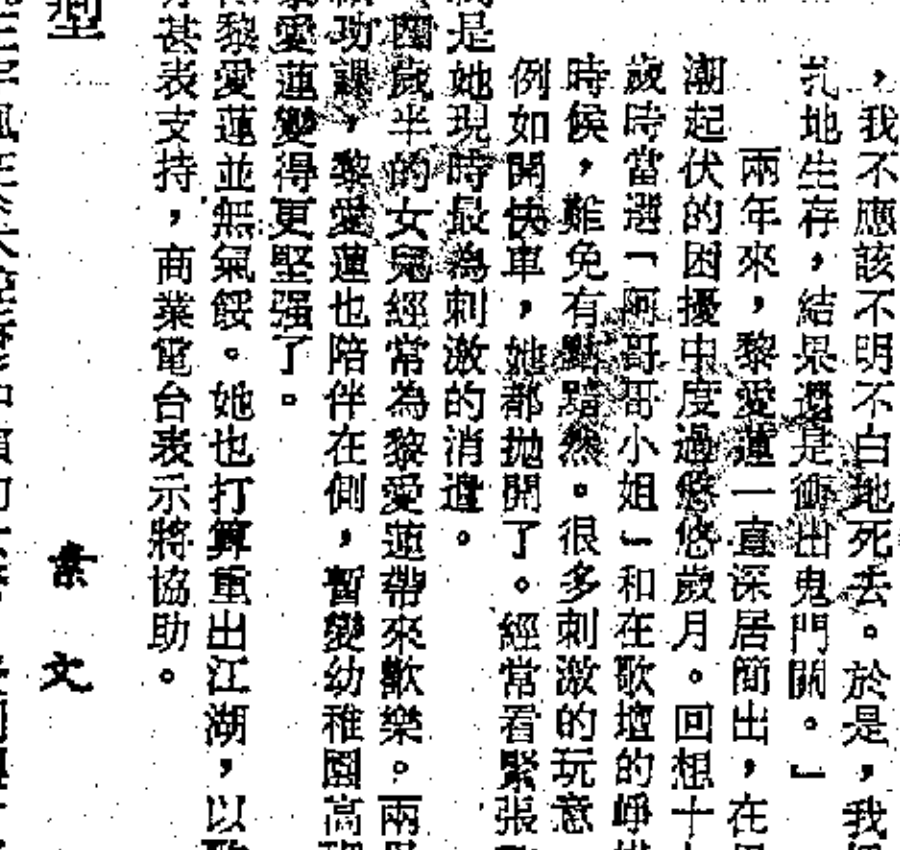 ，我不應該不明不白地死去。於是，我
地生存，結果還是衝出鬼門關。」
兩年來，黎愛蓮一直深居簡出，在
潮起伏的困擾中度過悠悠歲月。回想十
歲時當選「阿哥哥小姐」和在歌壇的崢
時候，難免有點黯然。很多刺激的玩意
例如開快車，她都拋開了。經常看緊張
是她現時最為刺激的消遣。
歲半的女兒經常為黎愛蓮帶來歡樂。兩
功課，黎愛蓮也陪伴在側，暫變幼稚園高
愛蓮變得更堅强了。
黎愛蓮並無氣餒。她也打算重出江湖，以
甚表支持，商業電台表示將協助。
型
文